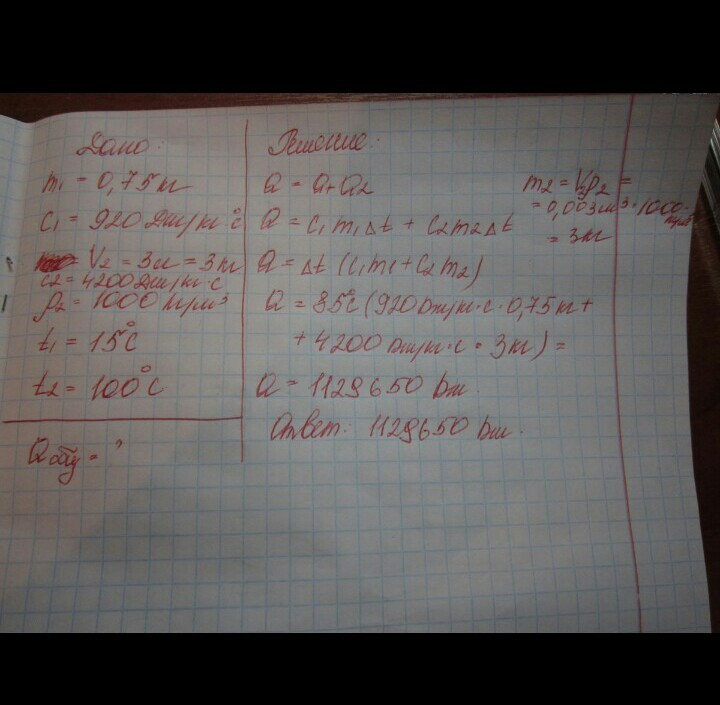 Дано:
m₁ = 0,75 кг
c₁ = 920 Дж/кг·°С
V₂ = 3л = 3 кг
c₂ = 4200 Дж/кг·с
ρ₂ = 1000 кг/м³
t₁ = 15°С
t₂ = 100°С
Qобщ = ?
Решение:
Q = Q₁+Q₂
Q = c₁m₁Δt + c₂m₂Δt
Q = Δt (c₁m₁+c₂m₂)
Q = 85°С (920 Дж/кг·с · 0,75 кг +
+ 4200 Дж/кг·с · 3 кг) =
Q = 1129650 Дж.
Ответ: 1129650 Дж.
m₂ = V₂ρ₂ =
= 0,003 м³ · 1000
= 3 кг